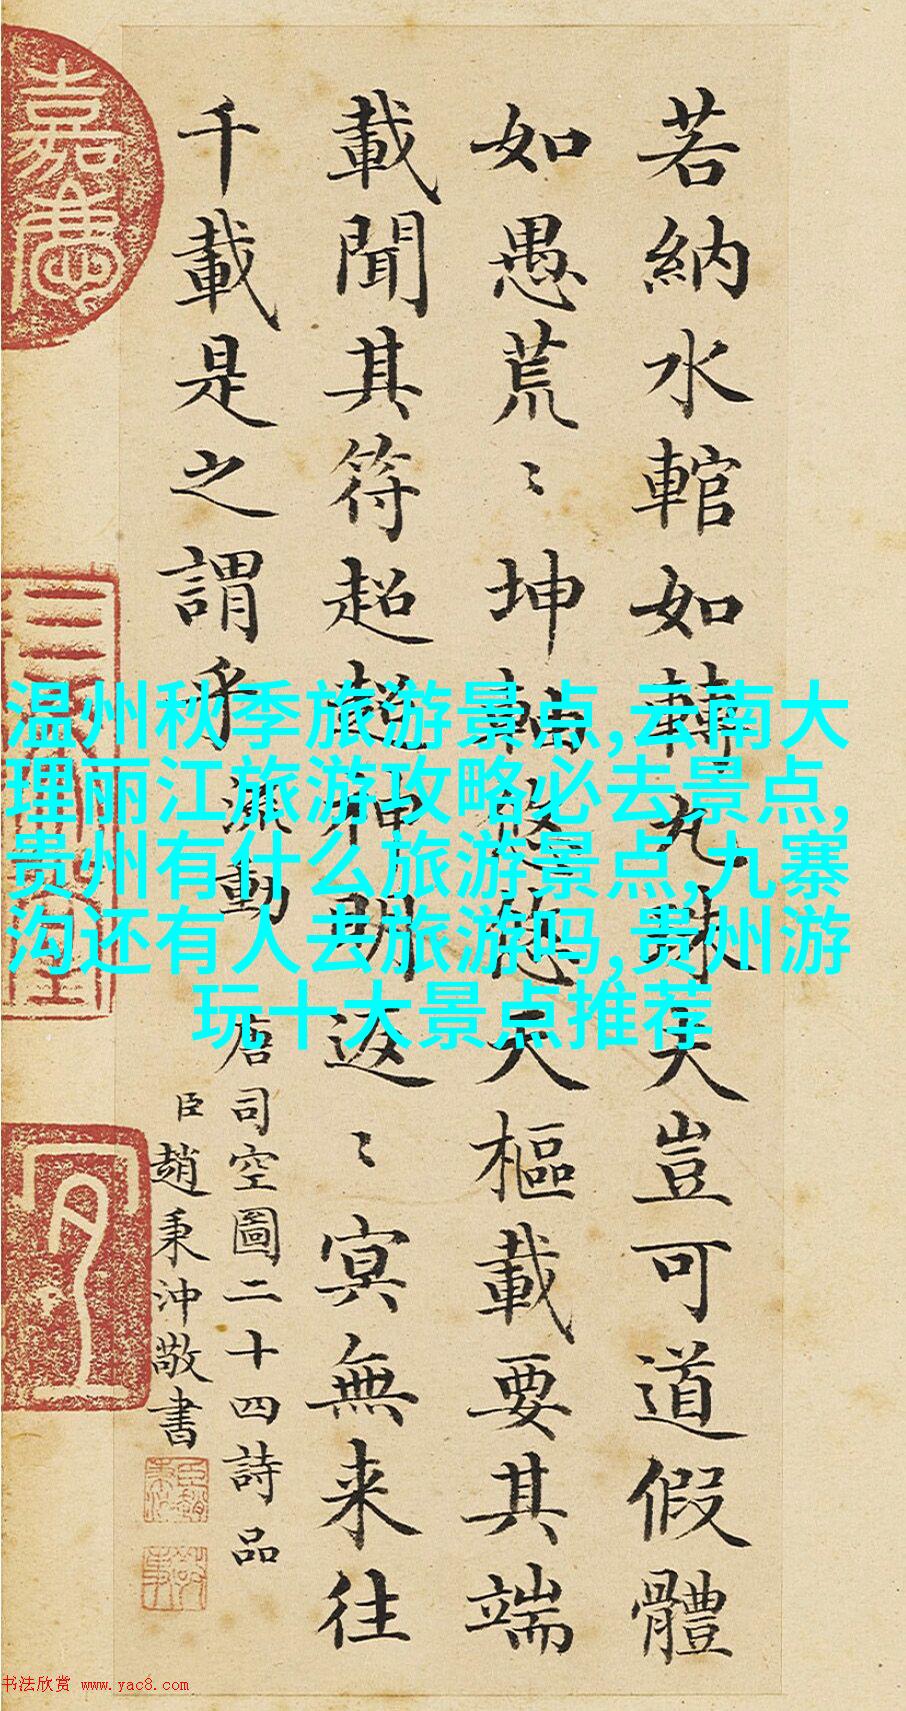 若納水輨如轉丸珠夫豈可道假體
如愚荒〻坤軸悠悠天樞載要其端
載聞其符超超神明返〻冥無来往
千載是之謂乎 流動
唐司空圖二十四詩品
臣趙秉沖敬書
嘉慶
温州秋季旅游景点,云南大
理丽江旅游攻略必去景点,
贵州有什么旅游景点,九寨
沟还有人去旅游吗,贵州游
玩十大景点推荐
书法欣赏 www.yac8.com